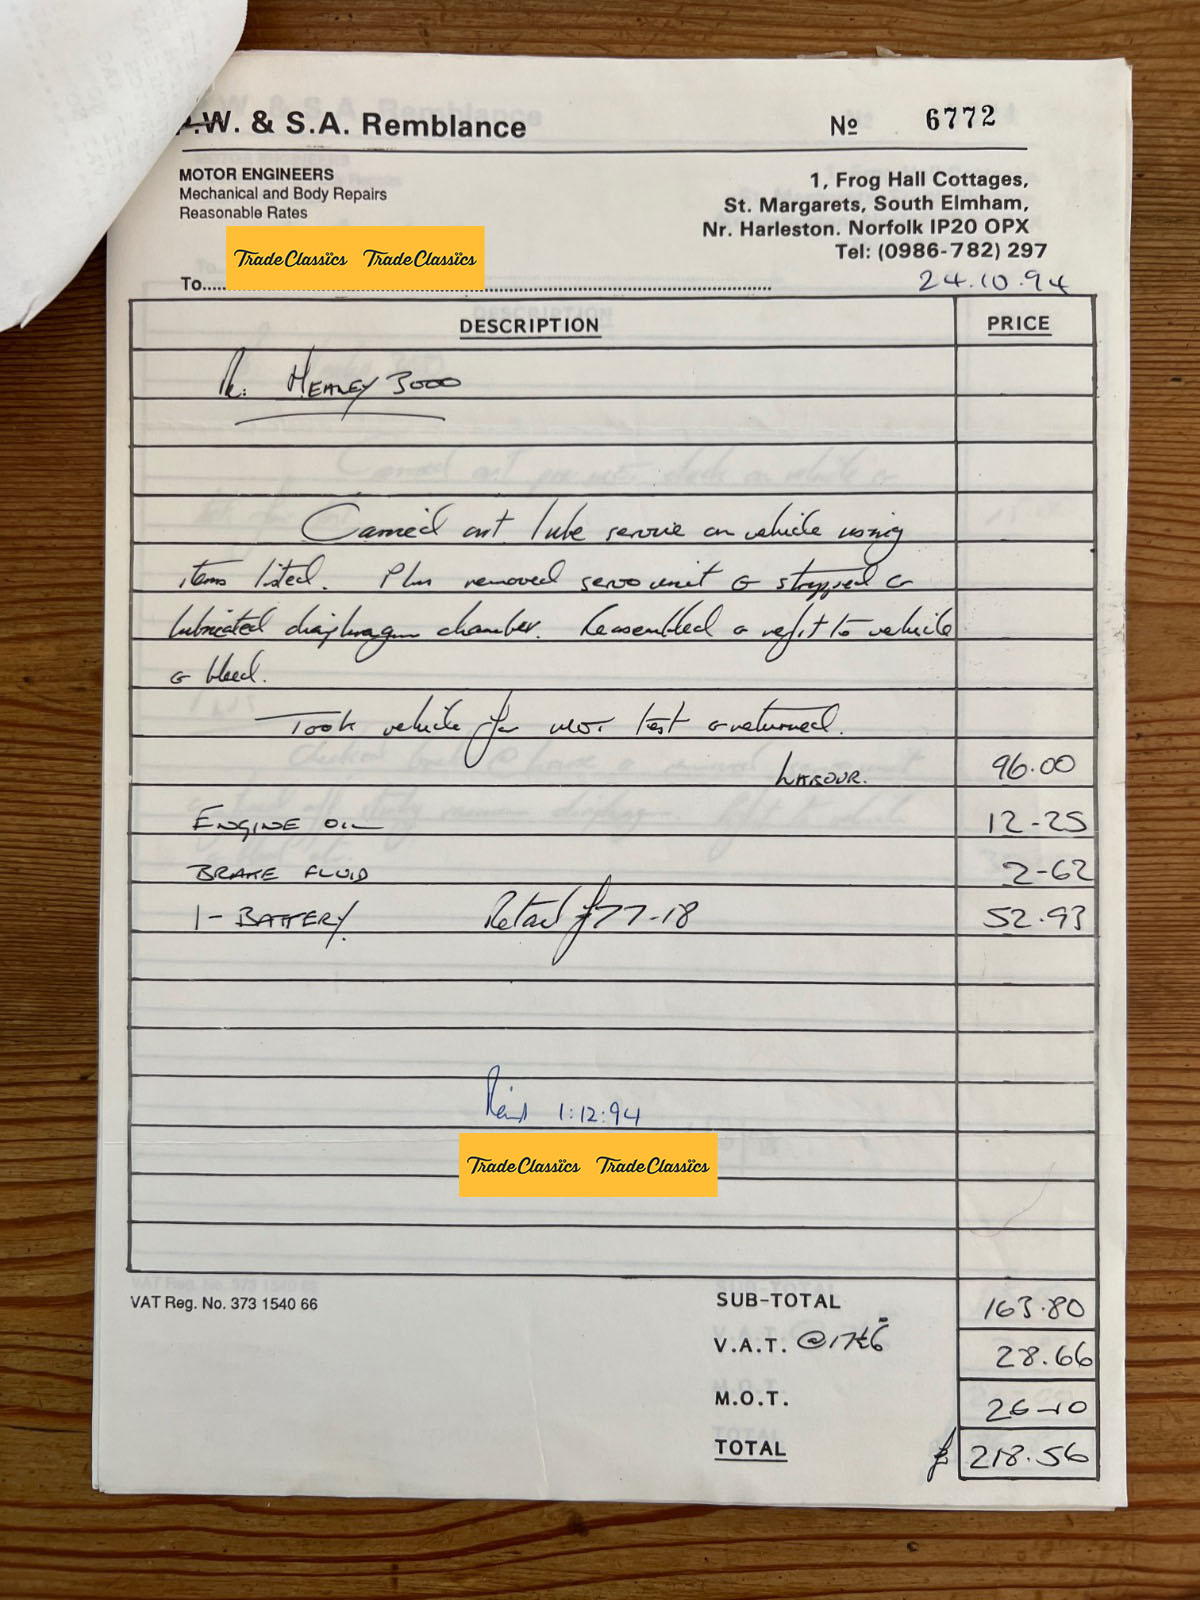 .W. & S.A. Remblance
Nº 6772
MOTOR ENGINEERS
Mechanical and Body Repairs
Reasonable Rates
1, Frog Hall Cottages,
St. Margarets, South Elmham,
Nr. Harleston. Norfolk IP20 OPX
Tel: (0986-782) 297
TradeClassics TradeClassics
To
24.10.94
DESCRIPTION PRICE
Re: HEALEY 3000
Carried out lube service on vehicle using
items listed. Plus removed servo unit & stripped &
lubricated diaphragm chamber. Reassembled & refit to vehicle
& bleed.
Took vehicle for MOT test & returned.
LABOUR. 96.00
ENGINE OIL 12-25
BRAKE FLUID 2-62
1 - BATTERY. Retail £77-18 52.93
Paid 1:12:94
TradeClassics TradeClassics
VAT Reg. No. 373 1540 66
SUB-TOTAL 163.80
V.A.T. @ 17½% 28.66
M.O.T. 26-10
TOTAL £ 218.56